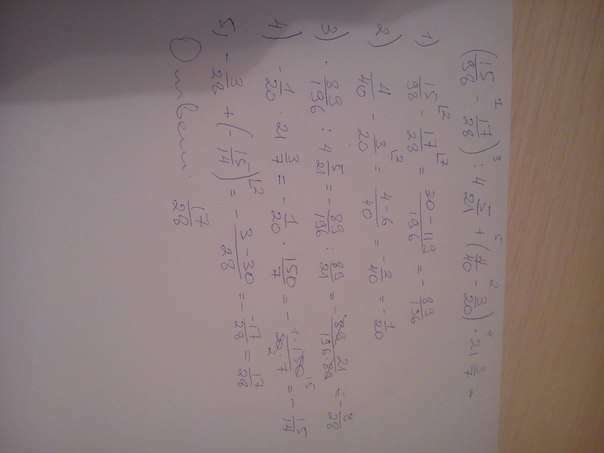 (15/98 - 17/28) : 4 5/21 + (4/40 - 3/20) · 21 3/7 =
1) 15/98 - 17/28 = 30-119/196 = - 89/196
2) 4/40 - 3/20 = 4-6/40 = -2/40 = - 1/20
3) - 89/196 : 4 5/21 = - 89/196 : 89/21 = - 89·21/196·89 = - 3/28
4) - 1/20 · 21 3/7 = - 1/20 · 150/7 = - 1·150/20·7 = - 15/14
5) - 3/28 + (- 15/14) = - 3-30/28 = - -17/28 = 17/28
Ответ: 17/28